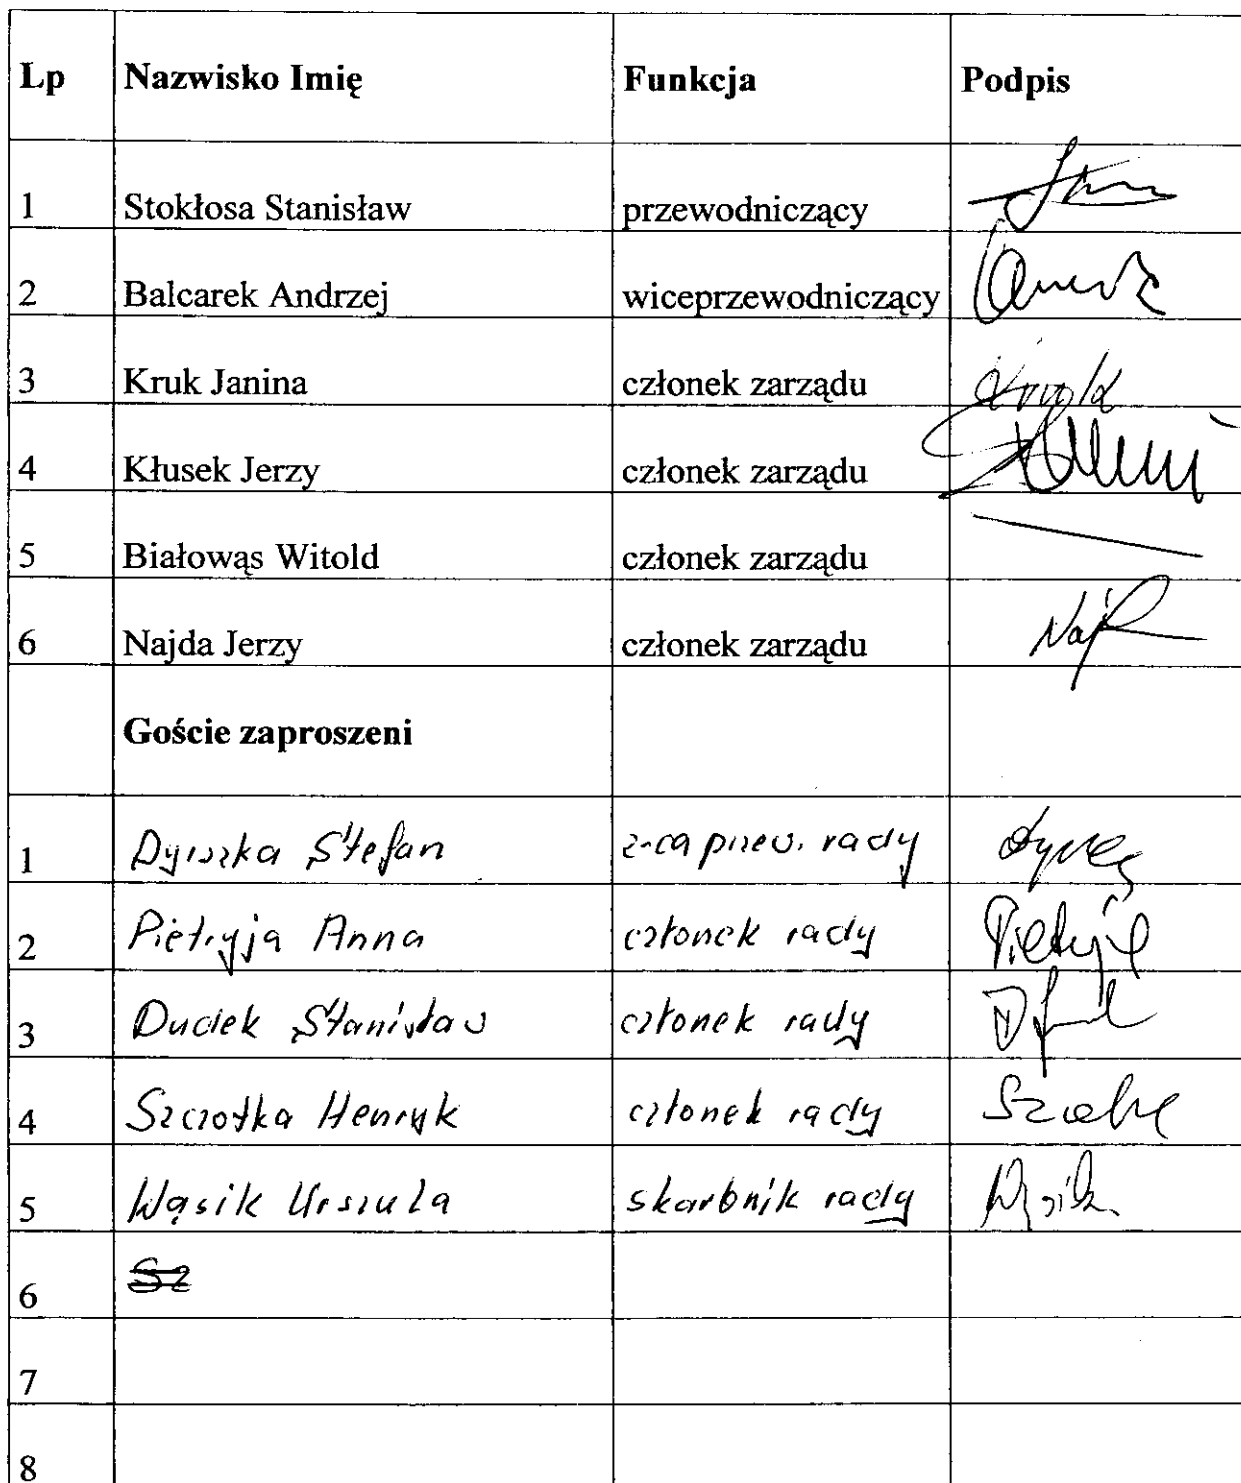 Lp Nazwisko Imię Funkcja Podpis
1 Stokłosa Stanisław przewodniczący
2 Balcarek Andrzej wiceprzewodniczący
3 Kruk Janina członek zarządu
4 Kłusek Jerzy członek zarządu
5 Białowąs Witold członek zarządu
6 Najda Jerzy członek zarządu
Goście zaproszeni
1 Stefan z-ca przew. rady
2 Pietryja Anna członek rady
3 Dudek Stanisław członek rady
4 Szczotka Henryk członek rady
5 Wąsik Urszula skarbnik rady
6 Sz
7
8